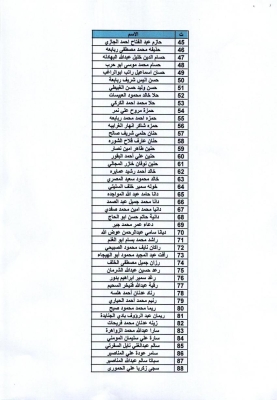 ت الاسم
45 حازم عبد الفتاح احمد الجازي
46 حذيفه محمد مصطفى ربابعه
47 حسام الدين خليل عبدالله
48 حسام محمد موسى ابو حرب
49 حسان اسماعيل راتب
50 حسن انيس شريف ربابعة
51 حسن وليد حسن
52 حلا خالد محمود العبيسات
53 حلا محمد احمد الكركي
54 حمزة مروح علي نمر
55 حمزه احمد محمد ربابعه
56 حمزه شاكر
57 حنان حلمي شريف صالح
58 حنان عارف فلاح الشوره
59 حنين ظاهر امين نصار
60 حنين علي احمد
61 حنين نوفان خازر المجالي
62 خالد احمد رشيد عمايره
63 خالد محمود سعيد المصري
64 خوله سمير خلف السليتي
65 دانا حامد عبد الله المواجده
66 دانا محمد جميل عبد الصمد
67 دانيا محمد امين محمد
68 دانية حاتم حسن ابو الحاج
69 دعاء عمر محمد جبر
70 ديانا سامي عبدالرحمن عوض الله
71 راشد محمد بسام ابو الغنم
72 راكان نايف محمود الصبيحي
73 رأفت عبد المجيد محمود ابو الهيجاء
74 رزان جميل مصطفى الخلف
75 رعد حسين عبدالله الشرمان
76 رغد سمير ابراهيم بدور
77 رقية عبدالله السحيم
78 رناد عدنان احمد
79 رنيم محمد احمد الحياري
80 ريما محمد محمود صبح
81 ريمان عبد الرؤوف بادي الجنايدة
82 زينه عدنان محمد فريحات
83 سارا محمد احمد الزواهرة
84 سارة علي سليمان المومني
85 سالم عبدالغني نايل
86 سامر عودة علي المناصير
87 سالم عبدالله المناصير
88 سجى زكريا علي الحموري